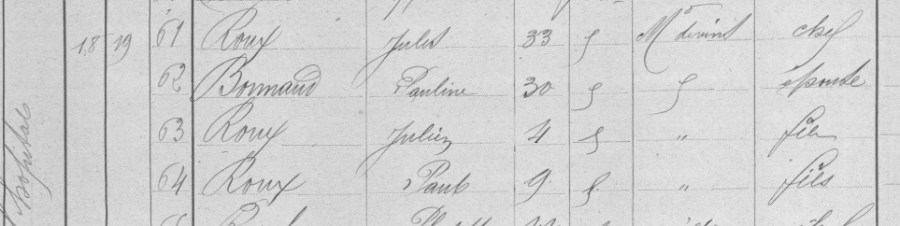 18 19 61 Roux Jules 33 f Md de vins chef
62 Bonnaud Pauline 30 f f épouse
63 Roux Julien 4 f " fils
64 Roux Paul 9 f " fils
hôpital